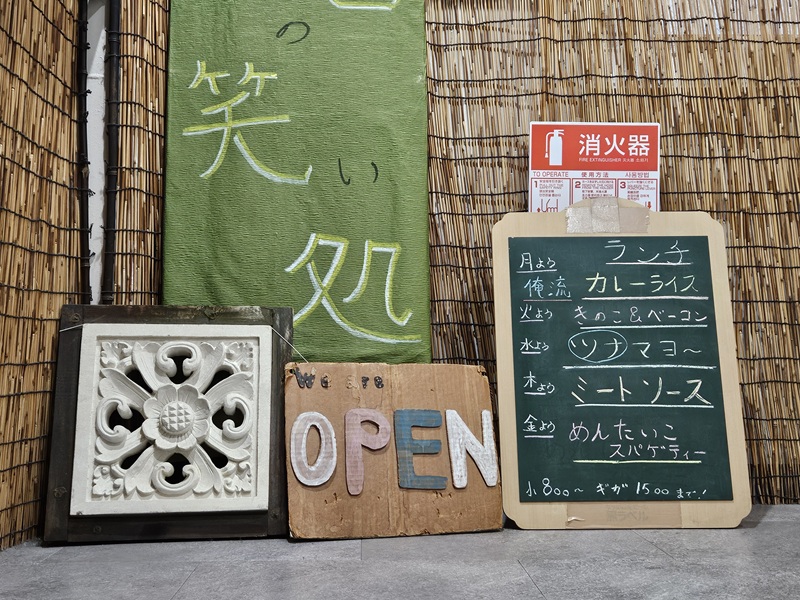 の
笑
い
処
消火器
FIRE EXTINGUISHER 灭火器 소화기
TO OPERATE 使用方法 사용방법
1 2 3
We are
OPEN
ランチ
月よう
俺流 カレーライス
火よう きのこ&ベーコン
水よう ツナマヨ〜
木よう ミートソース
金よう めんたいこ
スパゲティー
小800〜 ギガ1500まで!